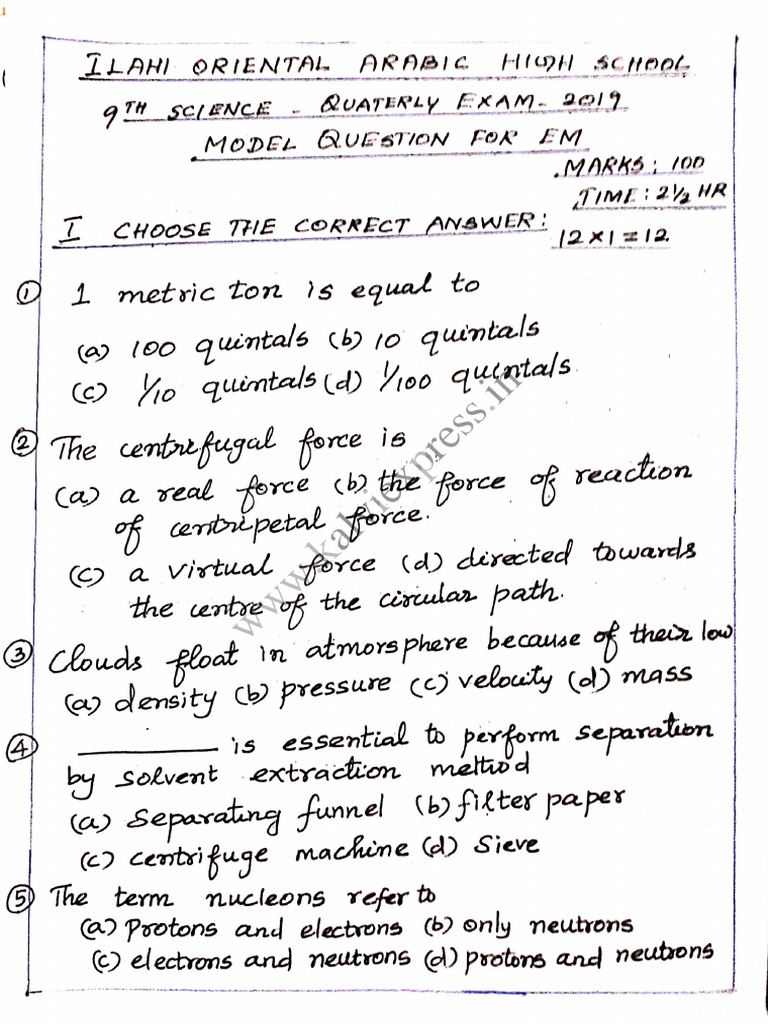 ILAHI ORIENTAL ARABIC HIGH SCHOOL
9TH SCIENCE - QUATERLY EXAM - 2019
MODEL QUESTION FOR EM
MARKS: 100
TIME: 2 1/2 HR
I CHOOSE THE CORRECT ANSWER:
12 x 1 = 12
① 1 metric ton is equal to
(a) 100 quintals (b) 10 quintals
(c) 1/10 quintals (d) 1/100 quintals
② The centrifugal force is
(a) a real force (b) the force of reaction
of centripetal force.
(c) a virtual force (d) directed towards
the centre of the circular path.
③ Clouds float in atmorsphere because of their low
(a) density (b) pressure (c) velocity (d) mass
④ __________ is essential to perform separation
by solvent extraction method
(a) Separating funnel (b) filter paper
(c) centrifuge machine (d) Sieve
⑤ The term nucleons refer to
(a) Protons and electrons (b) only neutrons
(c) electrons and neutrons (d) protons and neutrons
www.kalviexpress.in